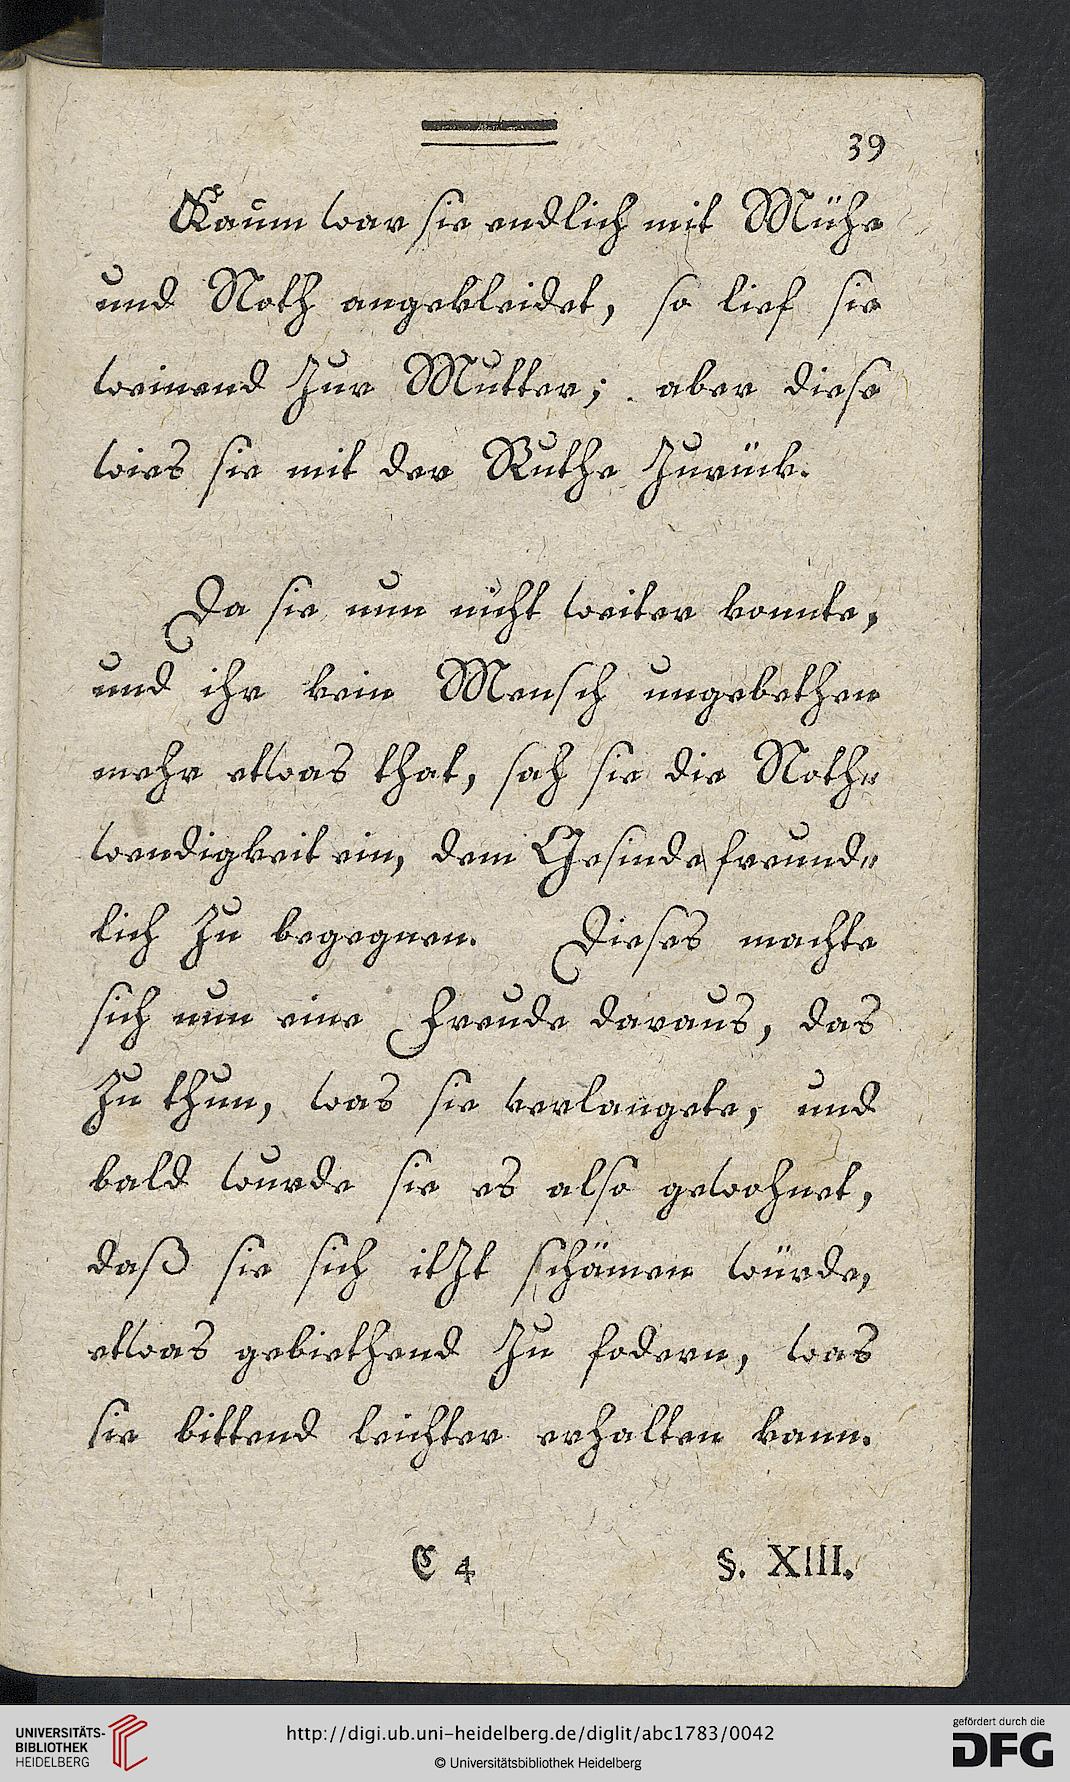 39
Kaum war sie endlich mit Mühe
und Noth angekleidet, so lief sie
weinend zur Mutter; aber diese
wies sie mit der Ruthe zurück.
Da sie nun nicht weiter konnte,
und ihr kein Mensch ungebethen
mehr etwas that, sah sie die Noth„
wendigkeit ein, dem Gesinde freund„
lich zu begegnen. Dieses machte
sich nun eine Freude daraus, das
zu thun, was sie verlangete, und
bald wurde sie es also gewohnet,
daß sie sich itzt schämen würde,
etwas gebiethend zu fodern, was
sie bittend leichter erhalten kann.
C 4 §. XIII.
UNIVERSITÄTS-
BIBLIOTHEK
HEIDELBERG
http://digi.ub.uni-heidelberg.de/diglit/abc1783/0042
© Universitätsbibliothek Heidelberg
gefördert durch die
DFG